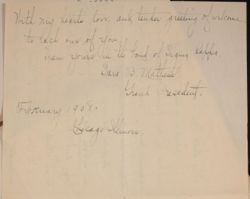 With my hearts love, and tender greeting of welcome
to each one of you,
I am yours in the bond of Sigma Kappa
Sara B. Mathews
Grand President.
February 190
Chicago Illinois.